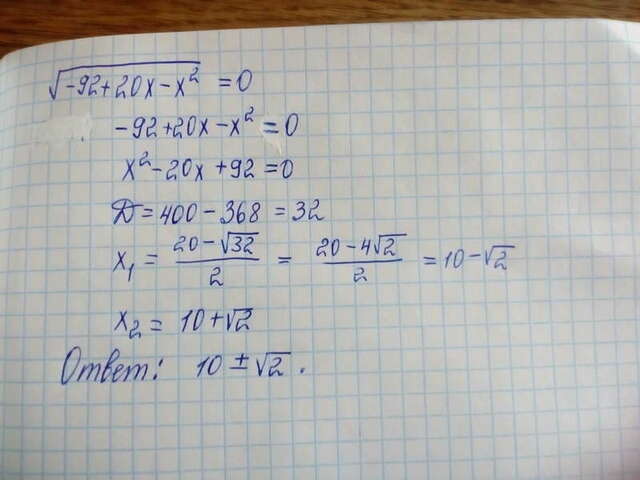 √(-92+20x-x²) = 0
-92+20x-x² = 0
x²-20x+92=0
D=400-368=32
x₁ = (20-√32)/2 = (20-4√2)/2 = 10-√2
x₂ = 10+√2
Ответ: 10±√2.